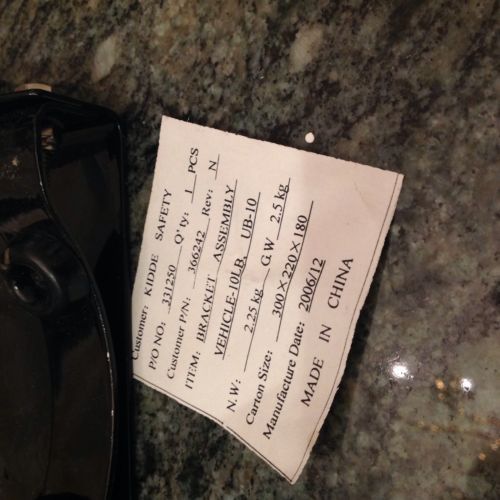 Customer: KIDDE SAFETY
P/O NO.: 331250 Q'ty: 1 PCS
Customer P/N: 366242 Rev: N
ITEM: BRACKET ASSEMBLY
VEHICLE-10LB UB-10
N.W: 2.25 kg G.W 2.5 kg
Carton Size: 300×220×180
Manufacture Date: 2006/12
MADE IN CHINA